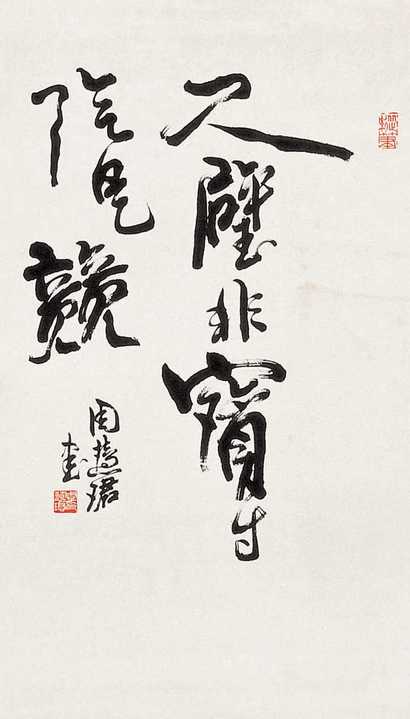 尺璧非寶寸
陰是競
周慧珺
書